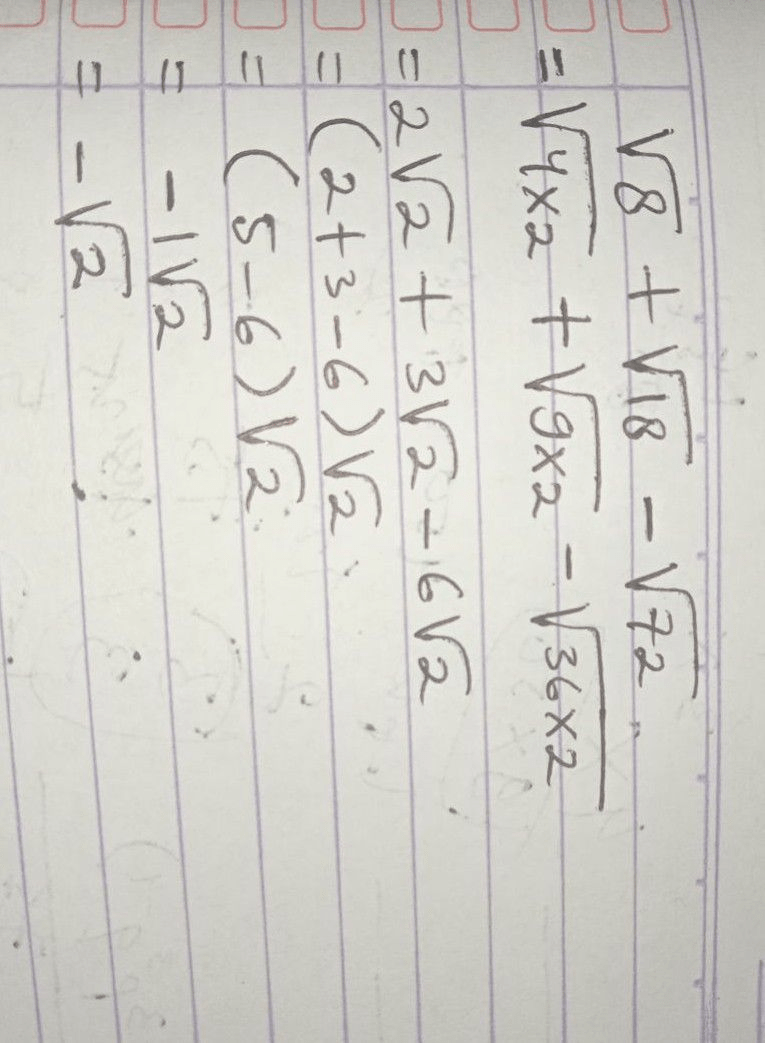 √8 + √18 - √72
= √4×2 + √9×2 - √36×2
= 2√2 + 3√2 - 6√2
= (2+3-6)√2
= (5-6)√2
= -1√2
= -√2